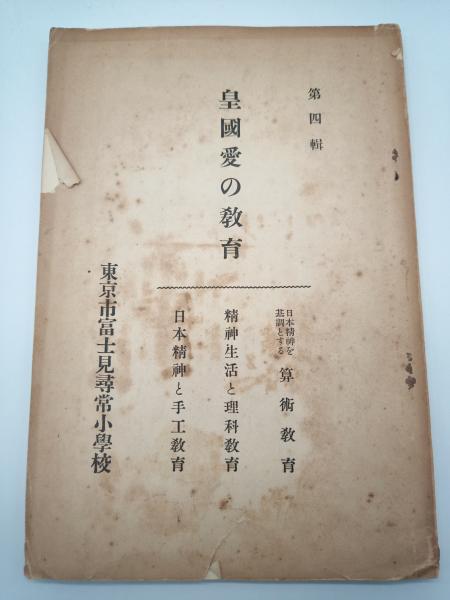 第四輯
皇國愛の教育
日本精神を
基調とする
算術教育
精神生活と理科教育
日本精神と手工教育
東京市富士見尋常小學校